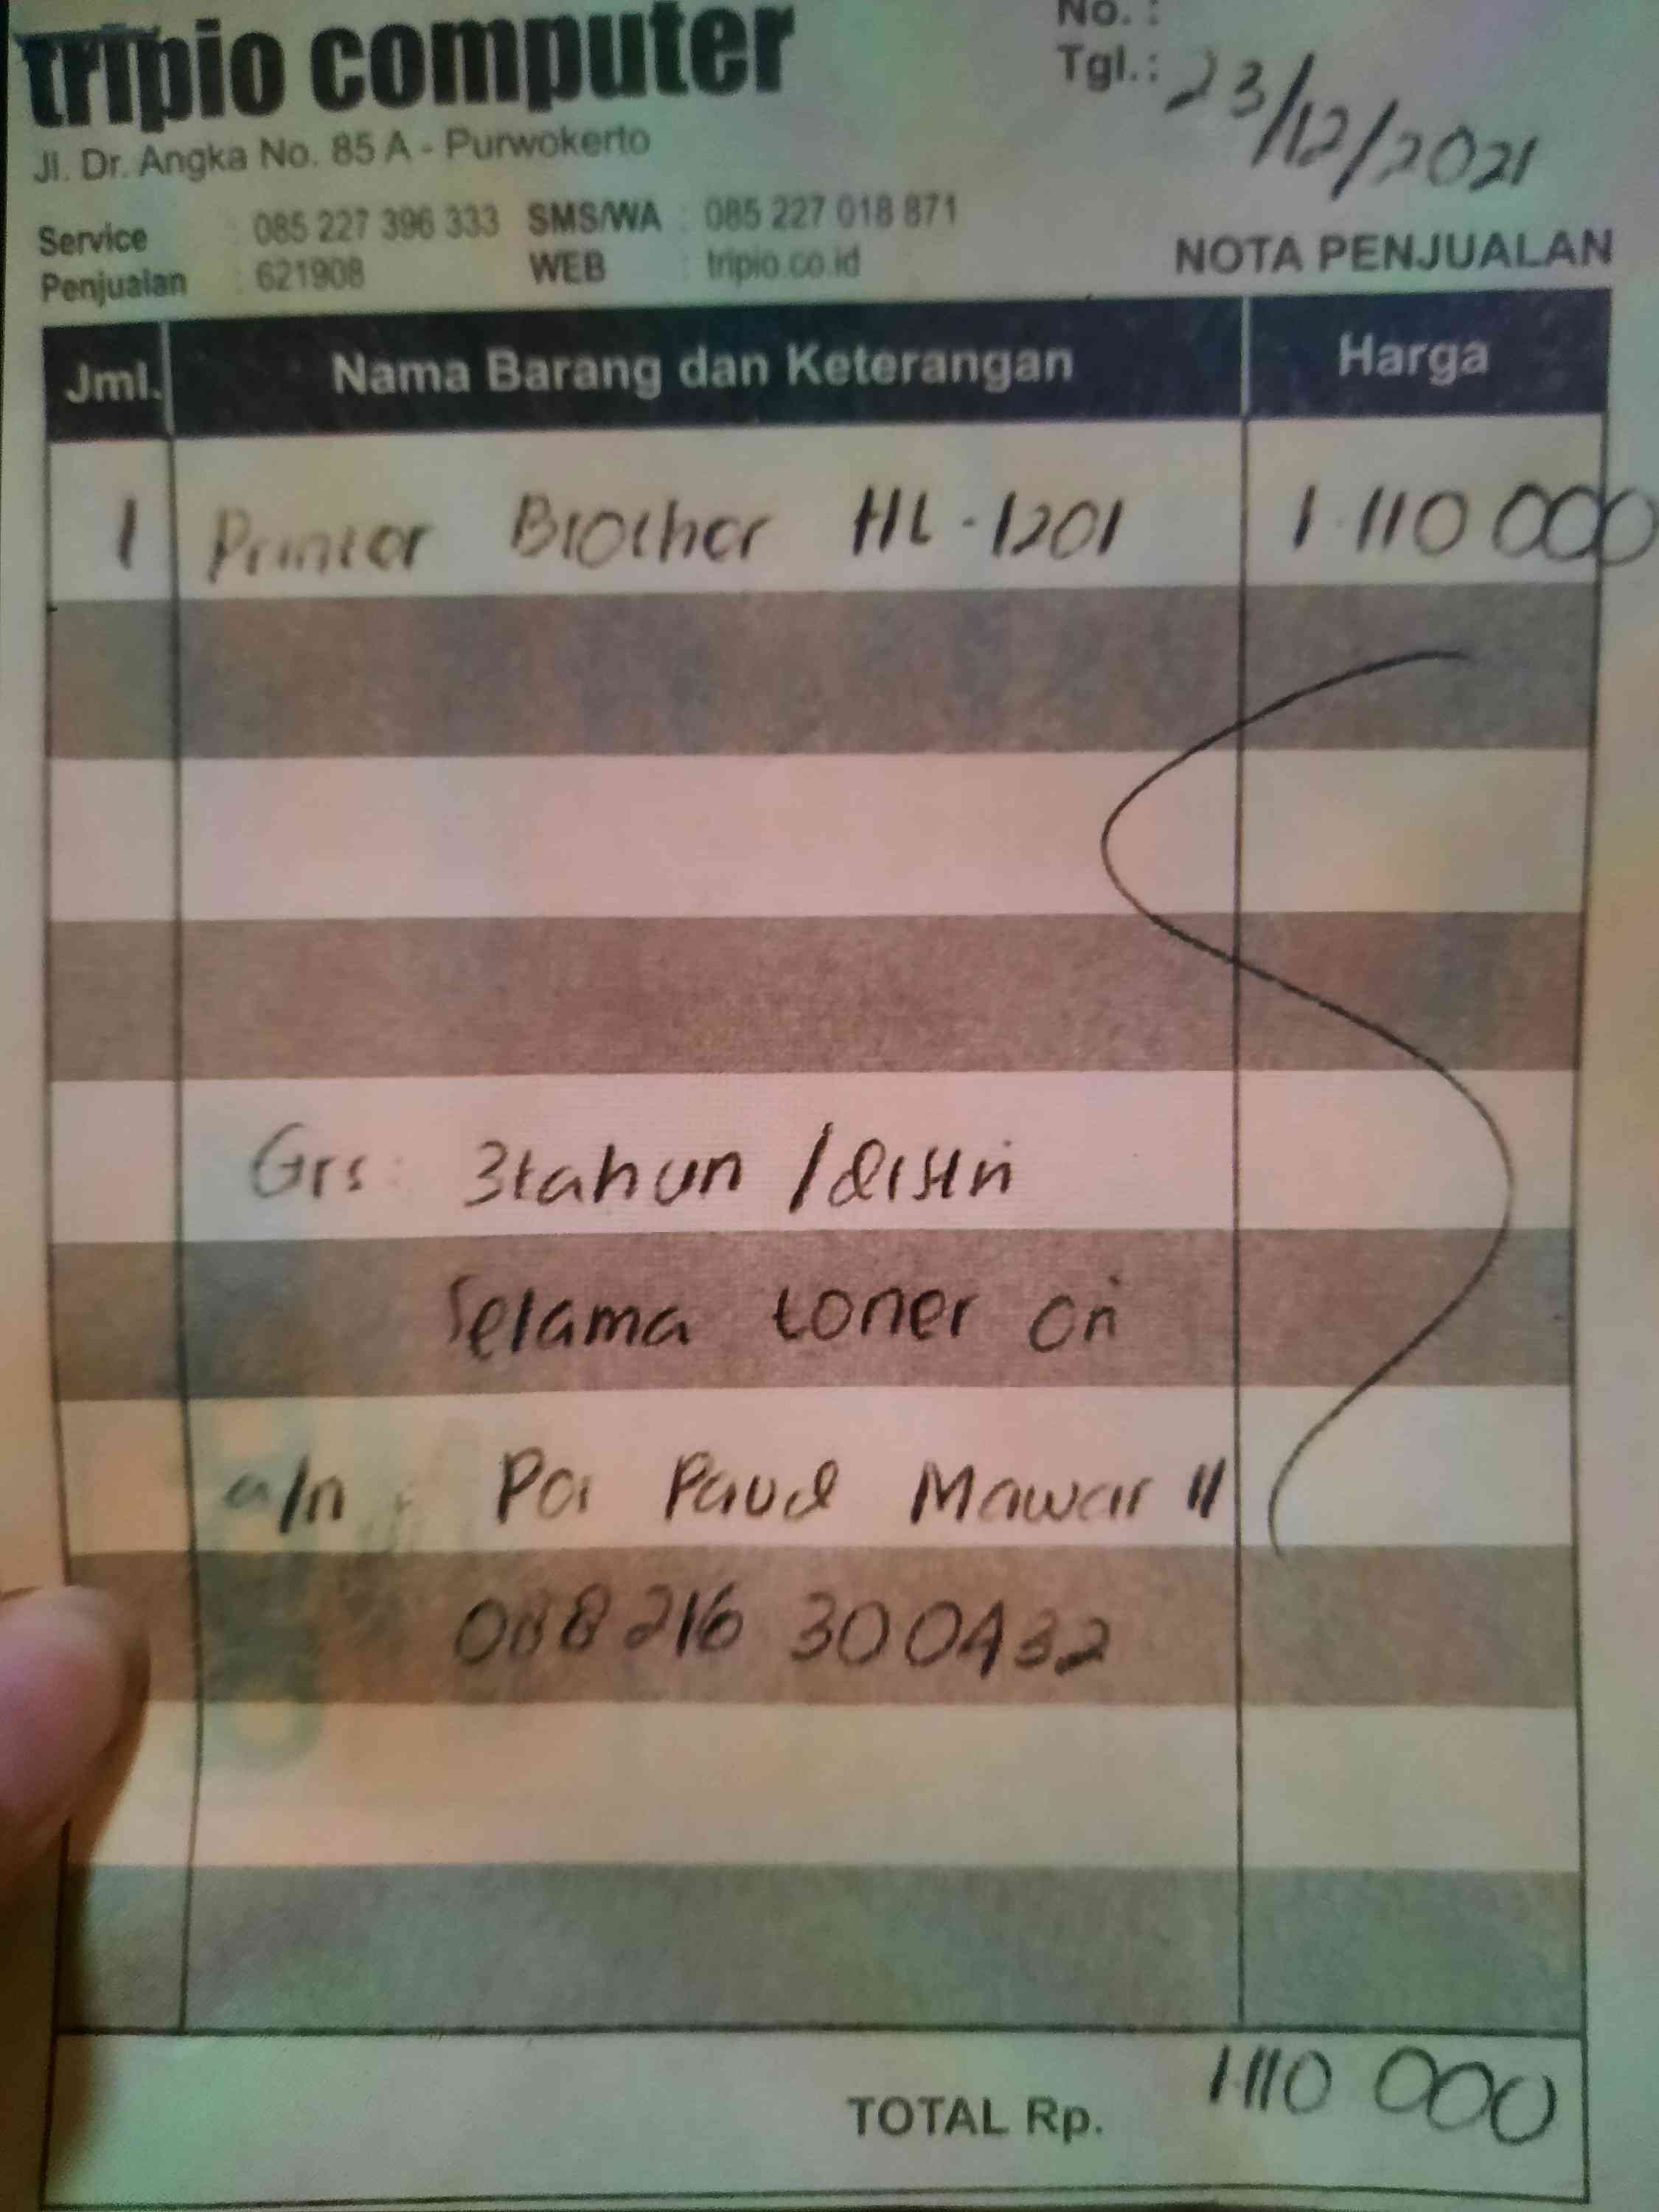 tripio computer
No. :
Tgl.: 23/12/2021
Jl. Dr. Angka No. 85 A - Purwokerto
Service : 085 227 396 333 SMS/WA : 085 227 018 871
Penjualan : 621908 WEB : tripio.co.id
NOTA PENJUALAN
Jml. Nama Barang dan Keterangan Harga
1 Printer Brother HL-1201 1.110 000
Grs: 3tahun /distri
Selama toner ori
a/n : Pos Paud Mawar II
088 216 300432
TOTAL Rp. 1.110 000